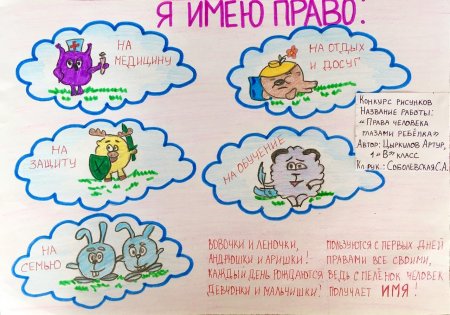 Я ИМЕЮ ПРАВО!
НА
МЕДИЦИНУ
НА ОТДЫХ
И ДОСУГ
НА
ЗАЩИТУ
НА ОБУЧЕНИЕ
НА
СЕМЬЮ
Конкурс рисунков
Название работы:
"Права человека
глазами ребёнка"
Автор: Циркулов Артур,
1 "В" класс
Кл.рук.: Соболевская С.А.
ВОВОЧКИ И ЛЕНОЧКИ,
АНДРЮШКИ И АРИШКИ!
КАЖДЫЙ ДЕНЬ РОЖДАЮТСЯ
ДЕВЧОНКИ И МАЛЬЧИШКИ!
ПОЛЬЗУЮТСЯ С ПЕРВЫХ ДНЕЙ
ПРАВАМИ ВСЕ СВОИМИ,
ВЕДЬ С ПЕЛЁНОК ЧЕЛОВЕК
ПОЛУЧАЕТ ИМЯ!